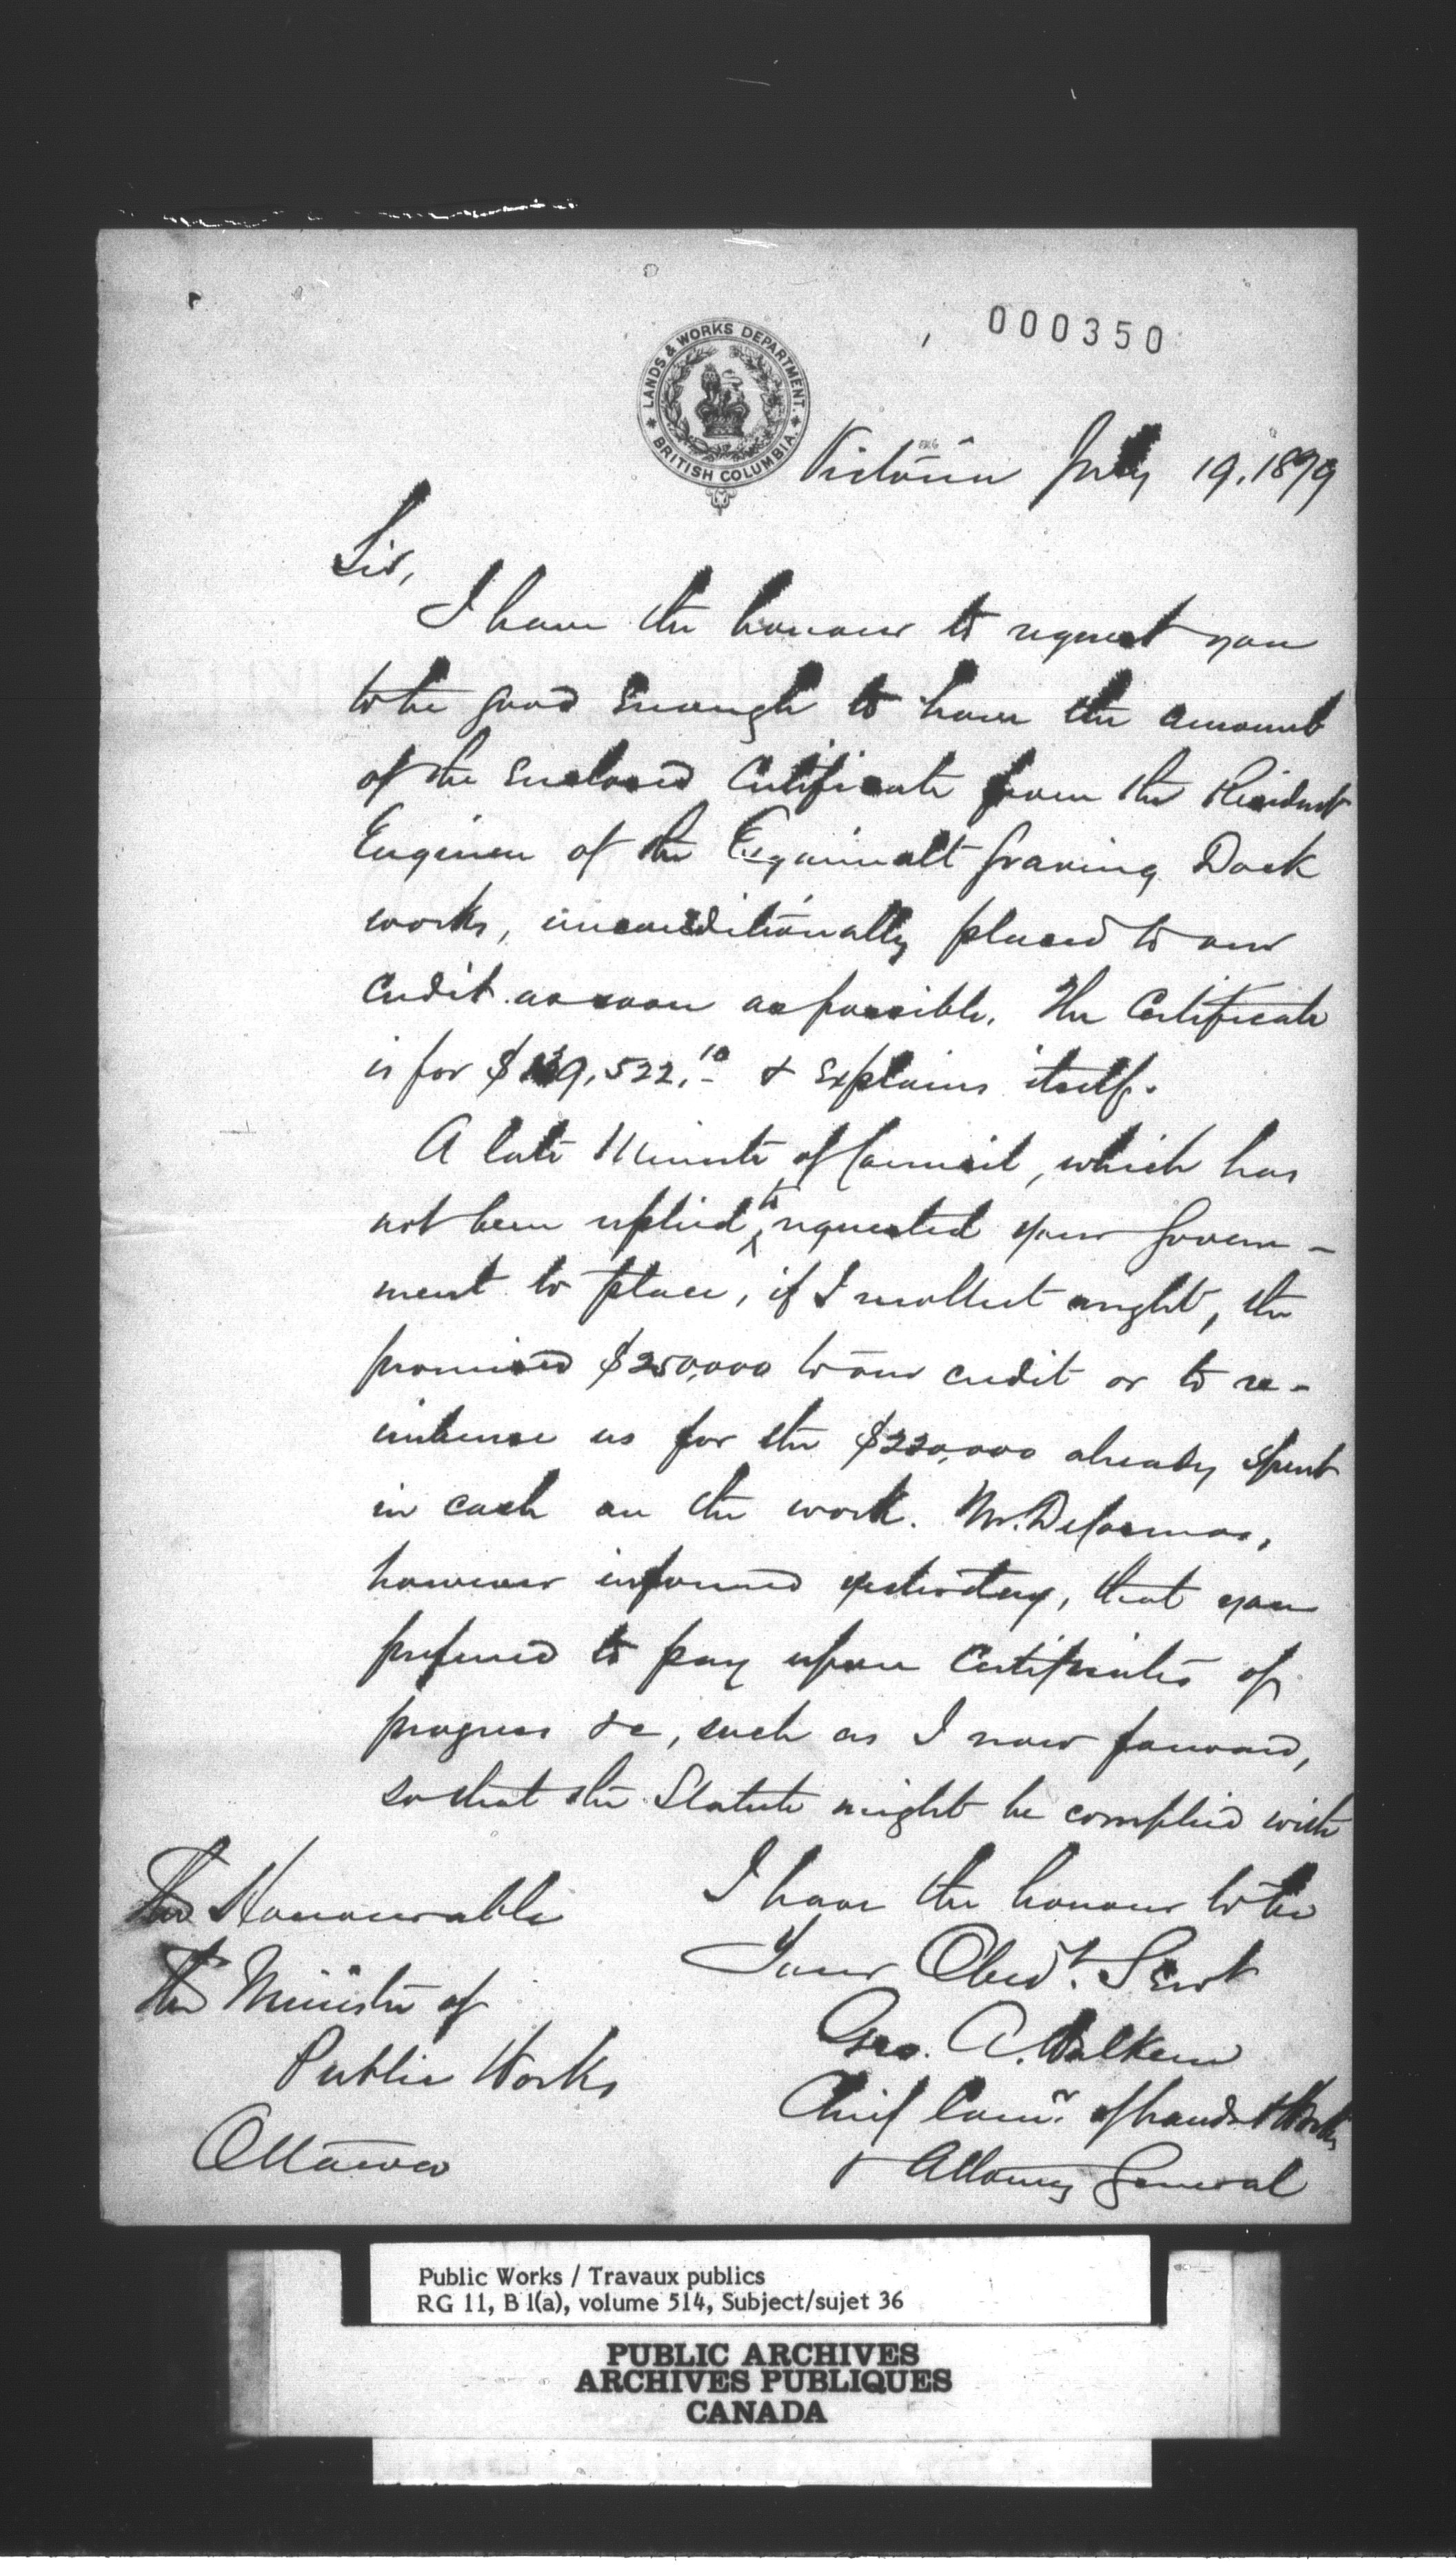 000350
LANDS & WORKS DEPARTMENT.
BRITISH COLUMBIA.
Victoria July 19. 1879
Sir,
I have the honour to request you
to be good enough to have the amount
of the enclosed Certificate from the Resident
Engineer of the Esquimalt Graving Dock
works, unconditionally placed to our
credit as soon as possible. The Certificate
is for $139,522.10 & explains itself.
A late Minute of Council, which has
not been replied to requested your Govern-
ment to place, if I recollect aright, the
promised $250,000 to our credit or to re-
imburse us for the $220,000 already spent
in cash on the work. Mr. DeCosmos,
however informed yesterday, that you
preferred to pay upon Certificates of
progress &c, such as I now forward,
so that the Statute might be complied with
I have the honour to be
Your Obed't. Servt
Geo. A. Walkem
Chief Comr. of Lands & Works
& Attorney General
The Honourable
The Minister of
Public Works
Ottawa
Public Works / Travaux publics
RG 11, B 1(a), volume 514, Subject/sujet 36
PUBLIC ARCHIVES
ARCHIVES PUBLIQUES
CANADA